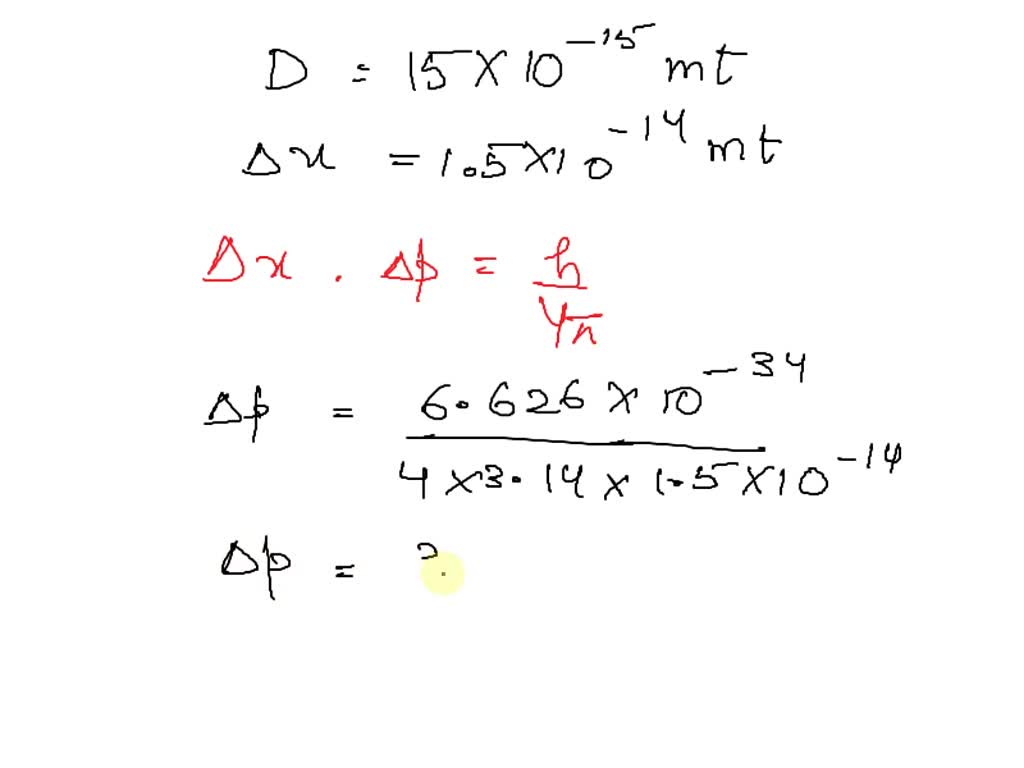 D = 15 × 10⁻¹⁵ mt
Δx = 1.5 × 10⁻¹⁴ mt
Δx . Δp = h / 4π
Δp = 6.626 × 10⁻³⁴ / 4 × 3.14 × 1.5 × 10⁻¹⁴
Δp =